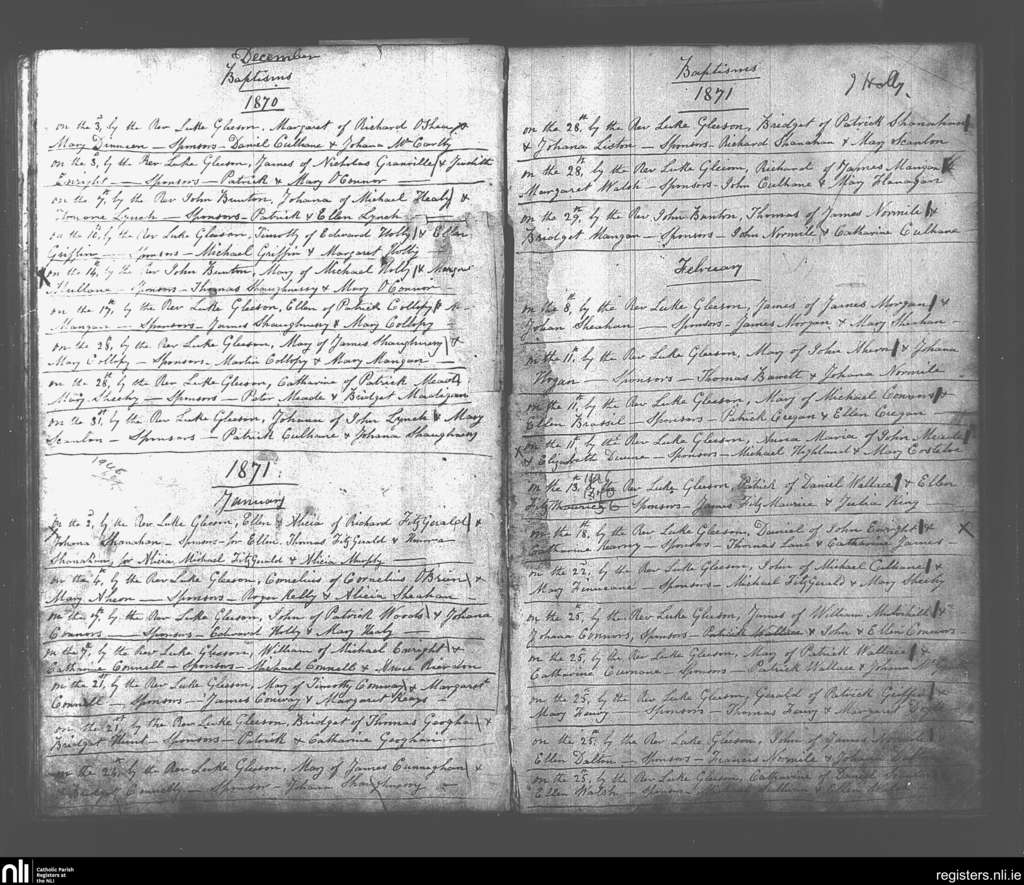 December
Baptisms
1870
on the 3d, by the Rev Luke Gleeson, Margaret of Richard O'Shea &
Mary Dinneen — Sponsors — Daniel Culhane & Johana McCarthy
on the 3, by the Rev Luke Gleeson, James of Nicholas Granville & Judith
Enright — Sponsors — Patrick & Mary O'Connor
on the 7th, by the Rev John Bunton, Johana of Michael Healy &
Lynch — Sponsors — Patrick & Ellen Lynch
on the by the Rev Luke Gleeson, Timothy of Edward Holly & Ellen
Griffin — Sponsors — Michael Griffin & Margaret Holly
X on the 14th, by the Rev John Bunton, Mary of Michael Holly &
Culhane — Sponsors — Thomas Shaughnessy & Mary O'Connor
on the 17th, by the Rev Luke Gleeson, Ellen of Patrick Collopy &
Mangan — Sponsors — James Shaughnessy & Mary Collopy
on the 28, by the Rev Luke Gleeson, Mary of James Shaughnessy &
Mary Collopy — Sponsors — Martin Collopy & Mary Mangan
on the 28th, by the Rev Luke Gleeson, Catharine of Patrick Meade
Mary Sheehy — Sponsors — Peter Meade & Bridget Madigan
on the 31st, by the Rev Luke Gleeson, Johana of John Lynch & Mary
Scanlon — Sponsors — Patrick Culhane & Johana Shaughnessy
1871
January
on the 2, by the Rev Luke Gleeson, Ellen & Alicia of Richard FitzGerald &
Johana Shanahan — Sponsors for Ellen, Thomas FitzGerald &
Shanahan, for Alicia Michael FitzGerald & Alicia Murphy
on the by the Rev Luke Gleeson, Cornelius of Cornelius O'Brien &
Mary Ahern — Sponsors — Roger Kelly & Alicia Sheahan
on the 7th, by the Rev Luke Gleeson, John of Patrick Woods & Johana
Connors — Sponsors — Edward Holly & Mary Healy
on the 7th, by the Rev Luke Gleeson, William of Michael Enright &
Catharine Connell — Sponsors — Michael Connell & Anne Reardon
on the 21, by the Rev Luke Gleeson, Mary of Timothy Conway & Margaret
Connell — Sponsors — James Conway & Margaret Keays
on the by the Rev Luke Gleeson, Bridget of Thomas Geoghan &
Bridget Hunt — Sponsors — Patrick & Catharine Geoghan
on the 24, by the Rev Luke Gleeson, Mary of James Cunneghan &
Bridget Connelly — Sponsor — Johana Shaughnessy
Baptisms
1871
J Holly.
on the 28th, by the Rev Luke Gleeson, Bridget of Patrick Shanahan
& Johana Liston — Sponsors — Richard Shanahan & Mary Scanlon
on the 28th, by the Rev Luke Gleeson, Richard of James Mangan &
Margaret Walsh — Sponsors — John Culhane & Mary Flanagan
on the 29th, by Rev John Bunton, Thomas of James Normile &
Bridget Mangan — Sponsors — John Normile & Catharine Culhane
February
on the 8th, by the Rev Luke Gleeson, James of James Morgan &
Johan Sheahan — Sponsors — James Morgan & Mary Sheahan
on the 11th, by the Rev Luke Gleeson, Mary of John Ahern & Johana
Hogan — Sponsors — Thomas & Johana Normile
on the 11th, by the Rev Luke Gleeson, Mary of Michael Connors &
Ellen Brassel — Sponsors — Patrick Cregan & Ellen Cregan
X on the 11th, by the Rev Luke Gleeson, Anna Maria of John Meade
& Elizabeth — Sponsors — Michael & Mary Costelloe
on the 13th, by Rev Luke Gleeson, Patrick of Daniel Wallace & Ellen
FitzMaurice — Sponsors — James FitzMaurice & Julia King
on the 18, by the Rev Luke Gleeson, Daniel of John Enright & X
Catharine Kearney — Sponsors — Thomas & Catharine James
on the 22, by the Rev Luke Gleeson, John of Michael Culhane &
Mary Finucane — Sponsors — Michael FitzGerald & Mary Sheehy
on the 25, by the Rev Luke Gleeson, James of William Mulvihill &
Johana Connors, Sponsors — Patrick Wallace & John & Ellen Connors
on the 25, by the Rev Luke Gleeson, Mary of Patrick Wallace &
Catharine Cunnane — Sponsors — Patrick Wallace & Johana
on the 25, by the Rev Luke Gleeson, Gerald of Patrick Griffin &
Mary Fenny — Sponsors — Thomas Fenny & Margaret
on the 25, by the Rev Luke Gleeson, John of James &
Ellen Dalton — Sponsors — Francis Normile & Johana
on the 25, by the Rev Luke Gleeson, Catharine of Daniel
Ellen Walsh — Sponsors — Michael & Ellen
nli
Catholic Parish
Registers at
the NLI
registers.nli.ie